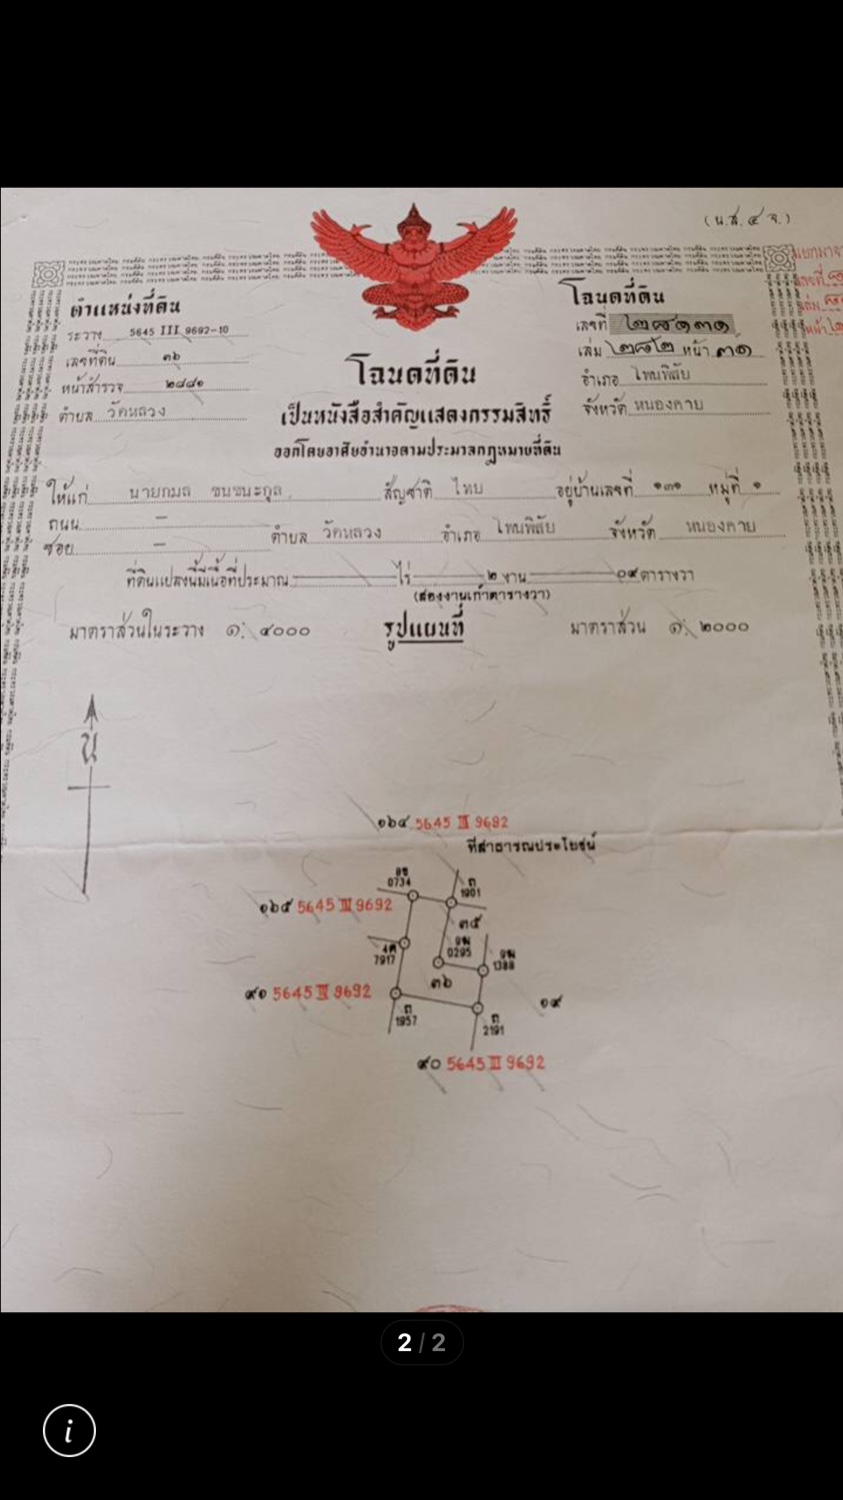 (น.ส. ๔ จ.)
ตำแหน่งที่ดิน
ระวาง 5645 III 9692-10
เลขที่ดิน ๓๖
หน้าสำรวจ ๒๘๘๑
ตำบล วัดหลวง
โฉนดที่ดิน
เลขที่ ๒๘๑๓๑
เล่ม ๒๘๒ หน้า ๓๑
อำเภอ โพนพิสัย
จังหวัด หนองคาย
โฉนดที่ดิน
เป็นหนังสือสำคัญแสดงกรรมสิทธิ์
ออกโดยอาศัยอำนาจตามประมวลกฎหมายที่ดิน
ให้แก่ นายกมล ชนชนะกุล สัญชาติ ไทย อยู่บ้านเลขที่ ๑๓๑ หมู่ที่ ๑
ถนน —
ซอย — ตำบล วัดหลวง อำเภอ โพนพิสัย จังหวัด หนองคาย
ที่ดินแปลงนี้มีเนื้อที่ประมาณ — ไร่ — ๒ งาน — ๐๙ ตารางวา
(สองงานเก้าตารางวา)
มาตราส่วนในระวาง ๑: ๔๐๐๐ รูปแผนที่ มาตราส่วน ๑: ๒๐๐๐
น
๑๖๔ 5645 III 9692
ที่สาธารณประโยชน์
0734
ถ
1901
๑๖๕ 5645 III 9692
๓๕
7917
0295
1388
๓๖
๙๑ 5645 III 9692
๑๙
ถ
1957
ถ
2191
๙๐ 5645 III 9692
2 / 2
i